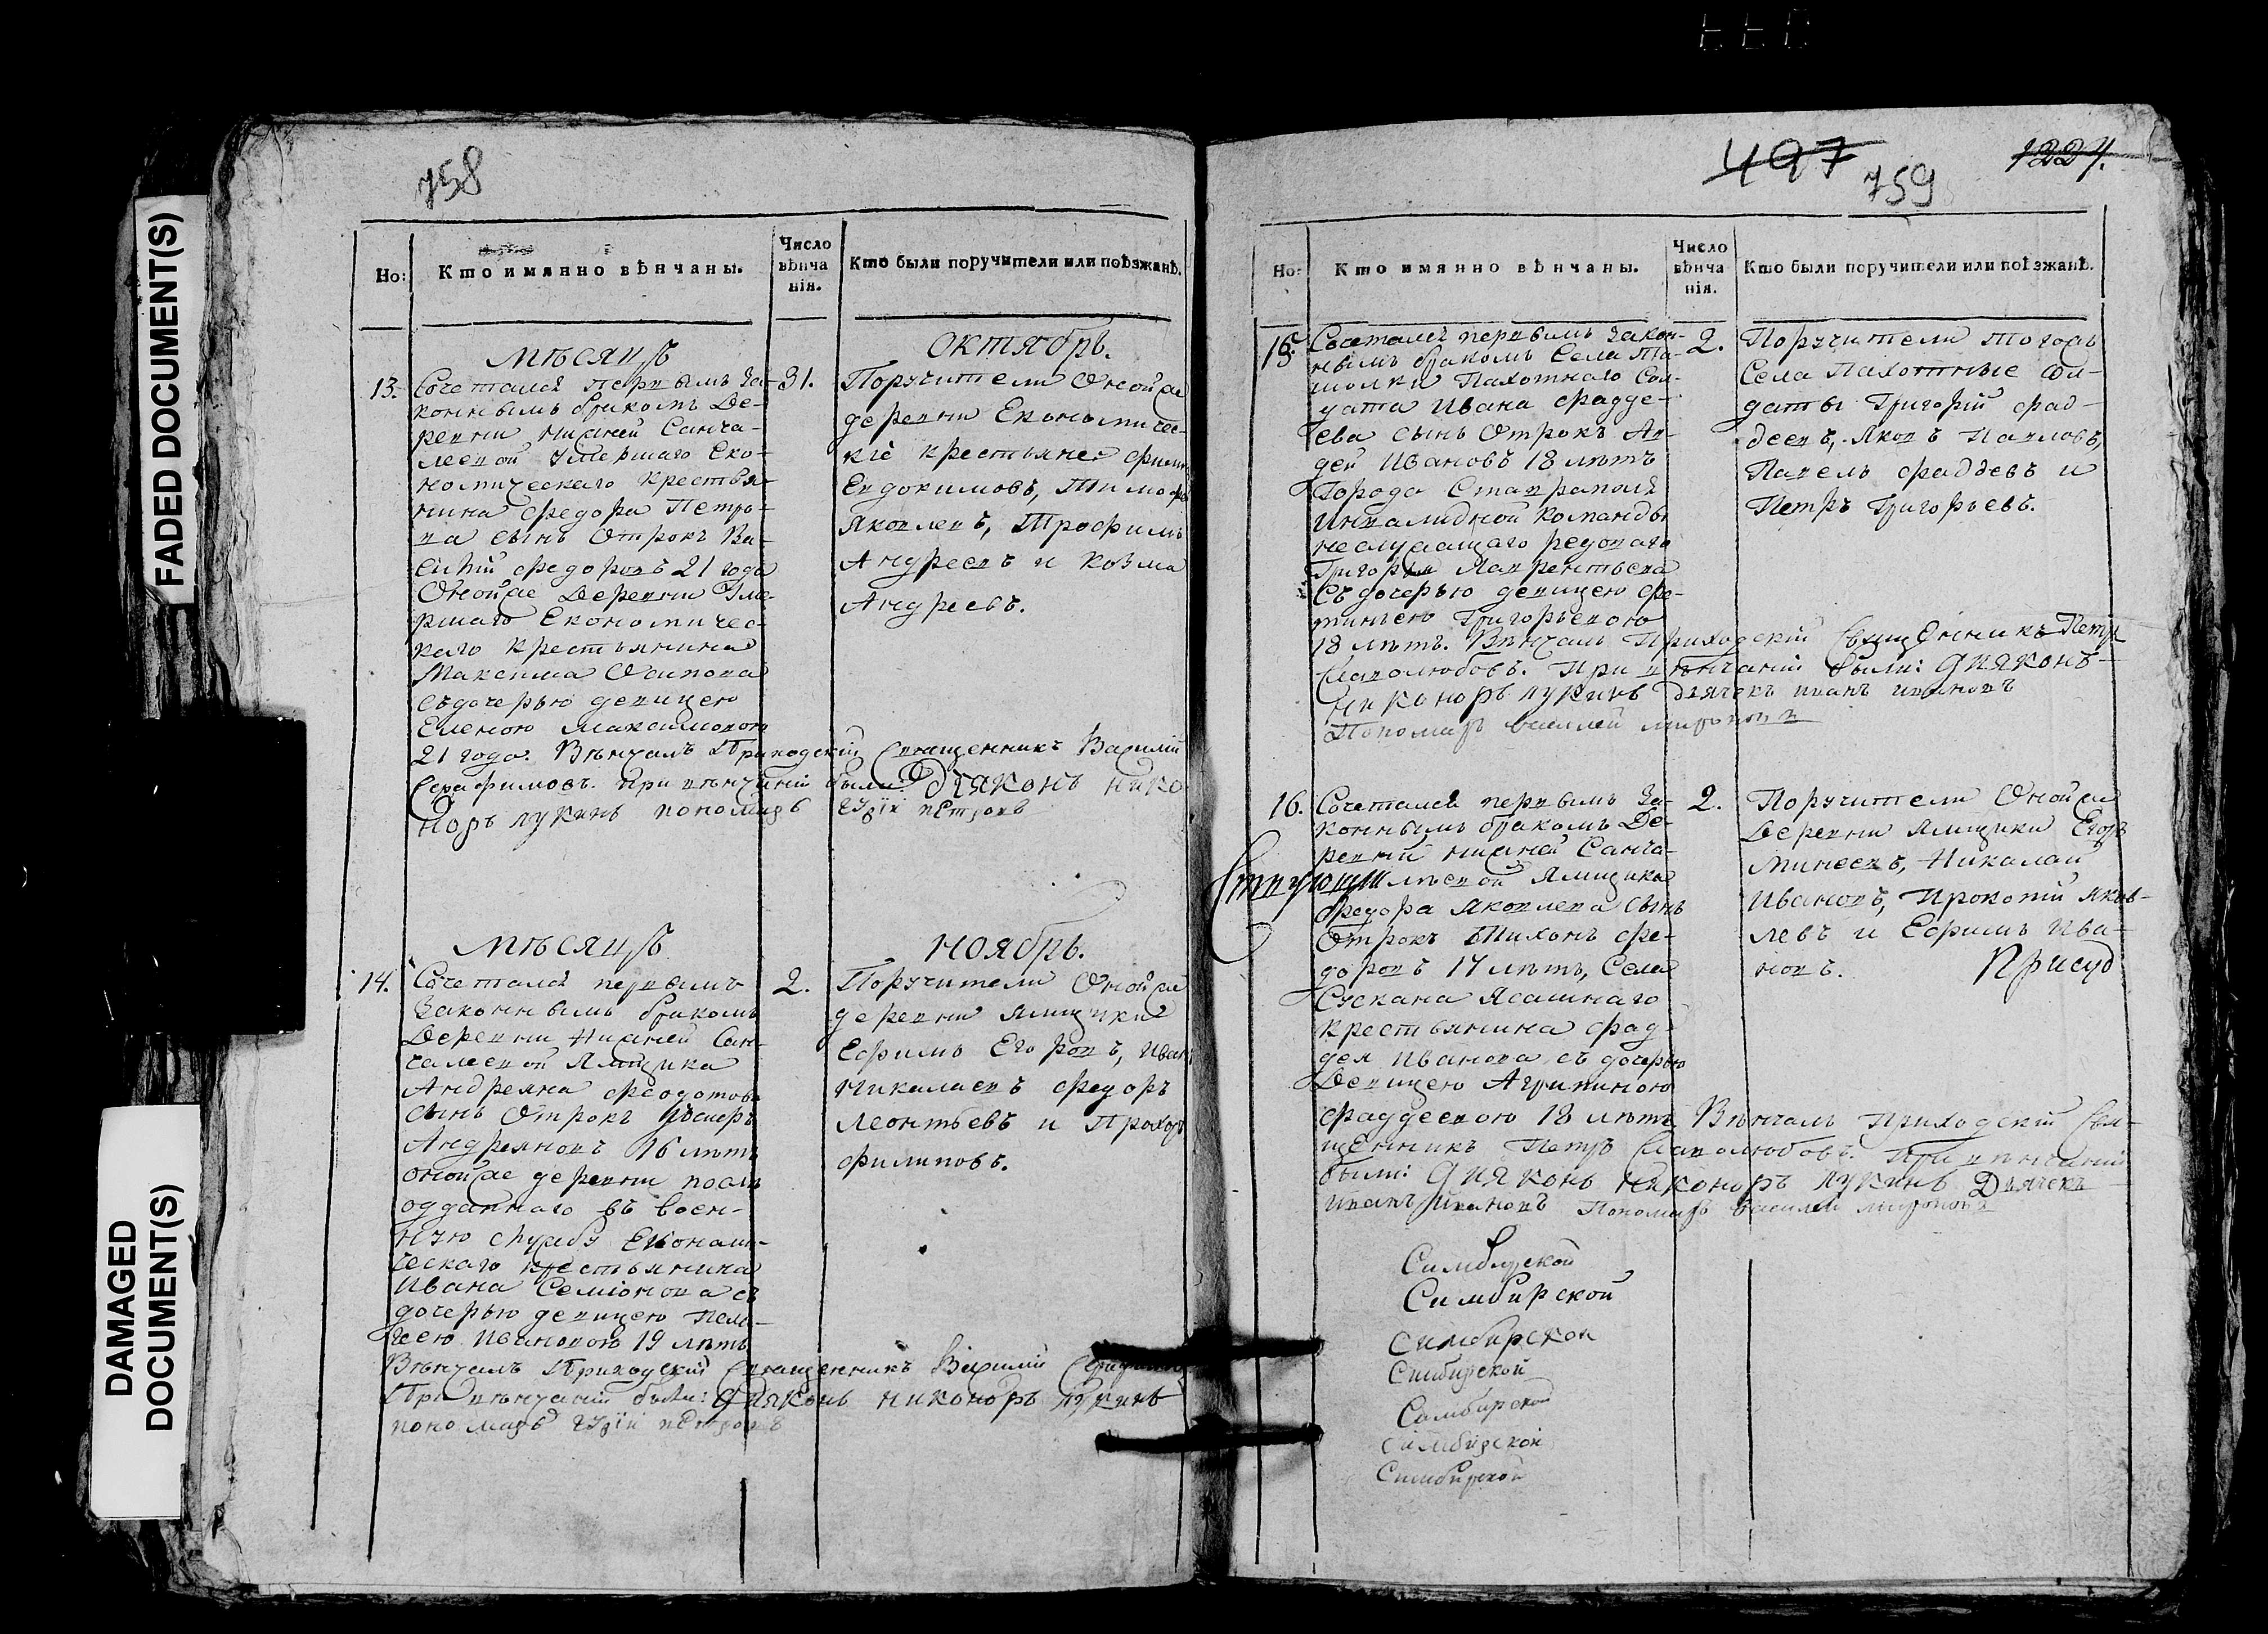 FADED DOCUMENT(S)
DAMAGED
DOCUMENT(S)
758
Но:
Кто имянно вѣнчаны.
Число
вѣнча
нія.
Кто были поручители или поѣзжанѣ.
Мѣсяцъ
Октябрь.
13.
Сочетался первымъ за-
коннымъ бракомъ Де-
ревни нижней Санча-
леевой умершаго Еко-
номическаго крестья-
нина Федора Петро-
ва сынъ Отрокъ Ва-
силій федоровъ 21 года
Оной же Деревни Уме-
ршаго Економичес-
каго крестьянина
Максима Осипова
съ дочерью девицею
Еленою Максимовою
21 года. Вѣнчалъ Приходскій Священникъ Василій
Серафимовъ. при вѣнчаніи были: Дїяконъ Нико
норъ лукинъ пономарь гурїй пЕтровъ
31.
Поручители Оной же
деревни Економичес-
кіе крестьяне филип
Евдокимовъ, Тимофѣ
Яковлевъ, Трофимъ
Андреевъ и Козма
Андреевъ.
Мѣсяцъ
Ноябрь.
14.
Сочетался первымъ
законнымъ бракомъ
Деревни Нижней Сан-
чалеевой Ямщика
Андреяна феодотова
сынъ Отрокъ
Андреяновъ 16 лѣтъ
оной же деревни
одданнаго въ воен-
ную службу Економи-
ческаго крестьянина
Ивана Семіонова съ
дочерью девицею Пела-
геею Ивановою 19 лѣтъ
Вѣнчалъ Приходскій Священникъ Василій
При вѣнчаніи были: Диаконъ никоноръ лукинъ
пономарь гурїй пЕтровъ
2.
Поручители Оной же
деревни Ямщики
Ефимъ Егоровъ, Иван
Николаевъ федоръ
Леонтьевъ и Прохор
филиповъ.
497
759
1224.
Но:
Кто имянно вѣнчаны.
Число
вѣнча
нія.
Кто были поручители или поѣзжанѣ.
15.
Сочетался первымъ закон-
нымъ бракомъ Села Та-
шолки Пахотнаго Сол-
дата Ивана фадде-
ева сынъ Отрокъ Ав-
дей Ивановъ 18 лѣтъ
Города Ставраполя
Инвалидной команды
неслужащаго редоваго
Григорья Лаврентьева
Съ дочерью девицею Фо-
тиньею Григорьевою
18 лѣтъ. Вѣнчалъ Приходскій Священникъ Петръ
Славолюбовъ. При вѣнчаніи были: дияконъ
никоноръ лукинъ дьячекъ иванъ ивановъ
Пономарь василей миронов
2.
Поручители тогожъ
Села Пахотные Сол-
даты Григорій фад-
деевъ, Яковъ Павловъ,
Павелъ фаддевъ и
Петръ Григорьевъ.
16.
Сочетался первымъ За-
коннымъ бракомъ Де-
ревни нижней Санча-
лѣевой Ямщика
федора Яковлева сынъ
Отрокъ Тихонъ фе-
доровъ 17 лѣтъ, Села
Сускана Ясашнаго
крестьянина фад-
дея Иванова съ дочерью
Девицею Агрипиною
фаддеевою 18 лѣтъ Вѣнчалъ Приходскій Свя-
щенникъ Петръ Славолюбовъ. При вѣнчаніи
были: дияконъ никоноръ лукинъ Дьячекъ
иванъ ивановъ Пономарь василей миронов
2.
Поручители Оной же
Деревни Ямщики Егоръ
Минеевъ, Николай
Ивановъ, Прокопій Яков-
левъ и Ефимъ Ива-
новъ.
Присуд
Симбирской
Симбирской
Симбирской
Симбирской
Симбирской
Симбирской
Симбирской